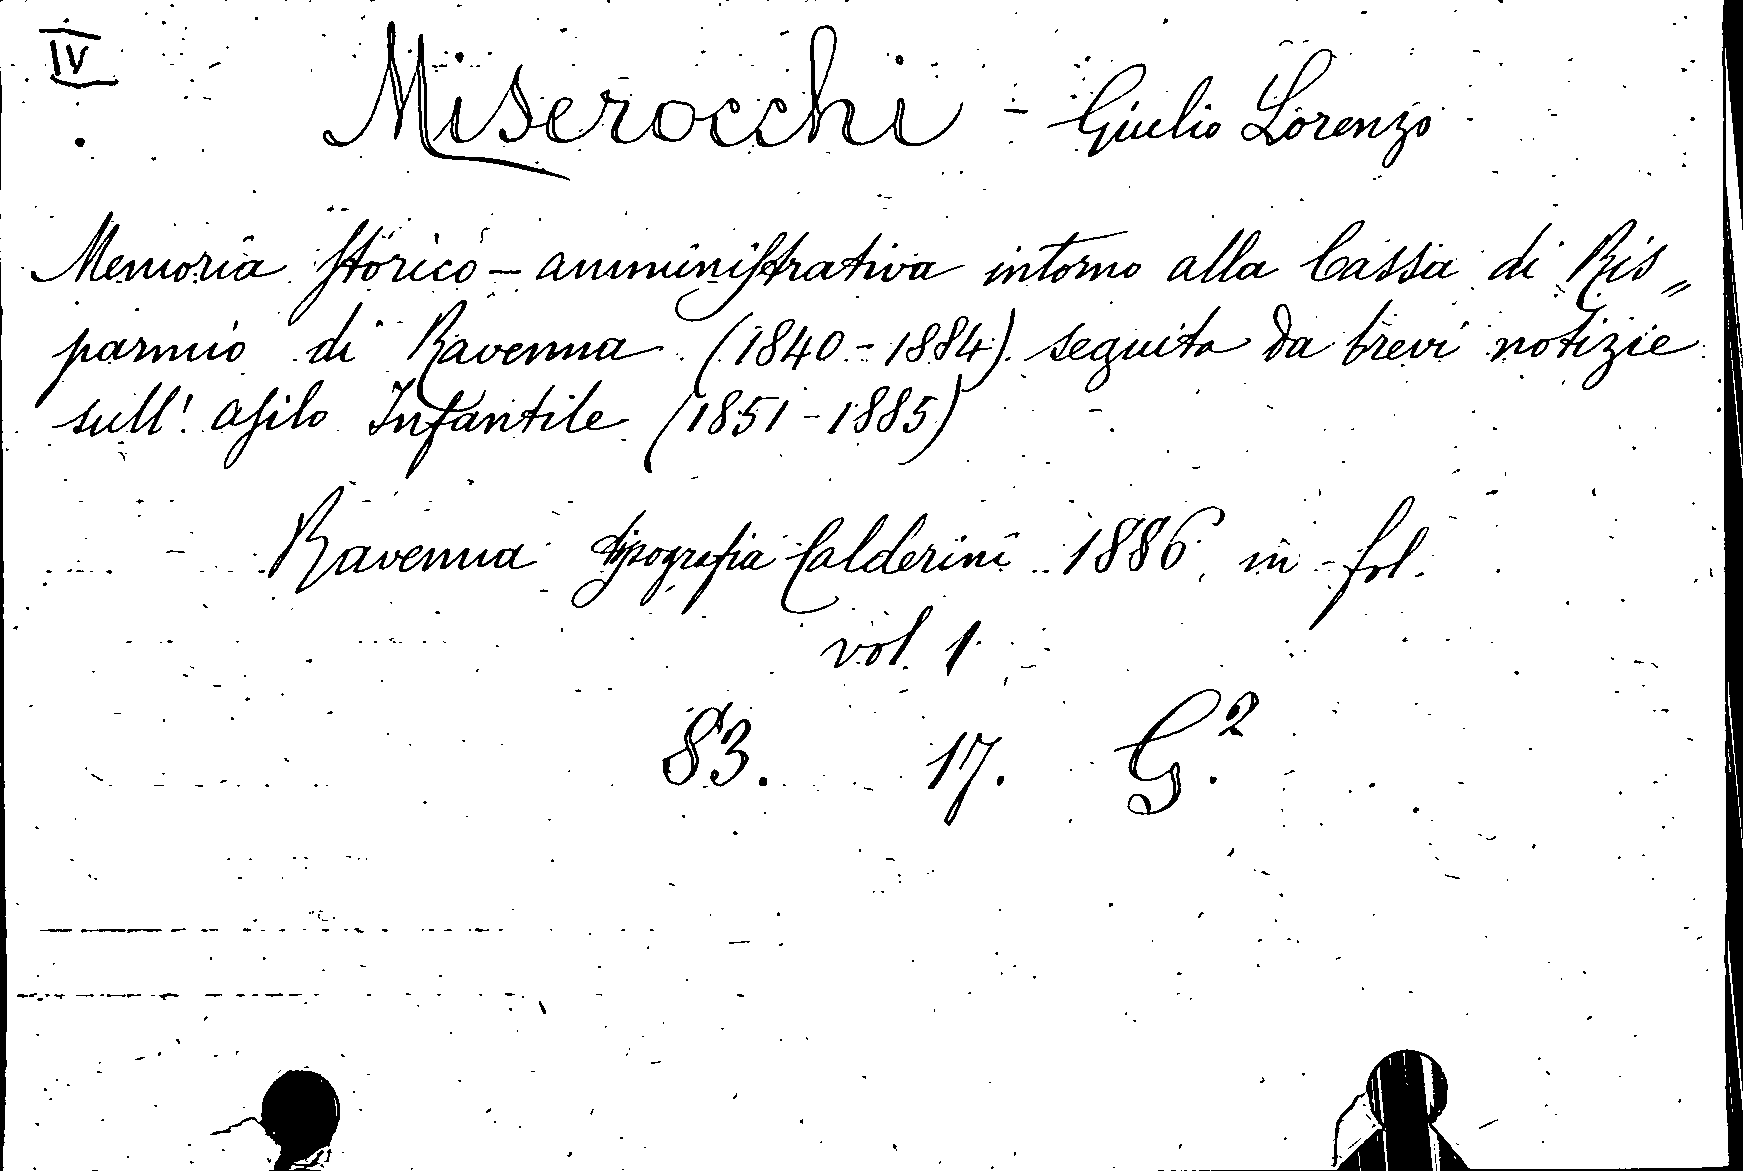 IV
Miserocchi - Giulio Lorenzo
Memoria storico - amministrativa intorno alla Cassa di Ris„
parmio di Ravenna (1840 - 1884) seguita da brevi notizie
sull' asilo Infantile (1851 - 1885)
Ravenna tipografia Calderini 1886 in fol.
vol. 1
83. 17. G.²